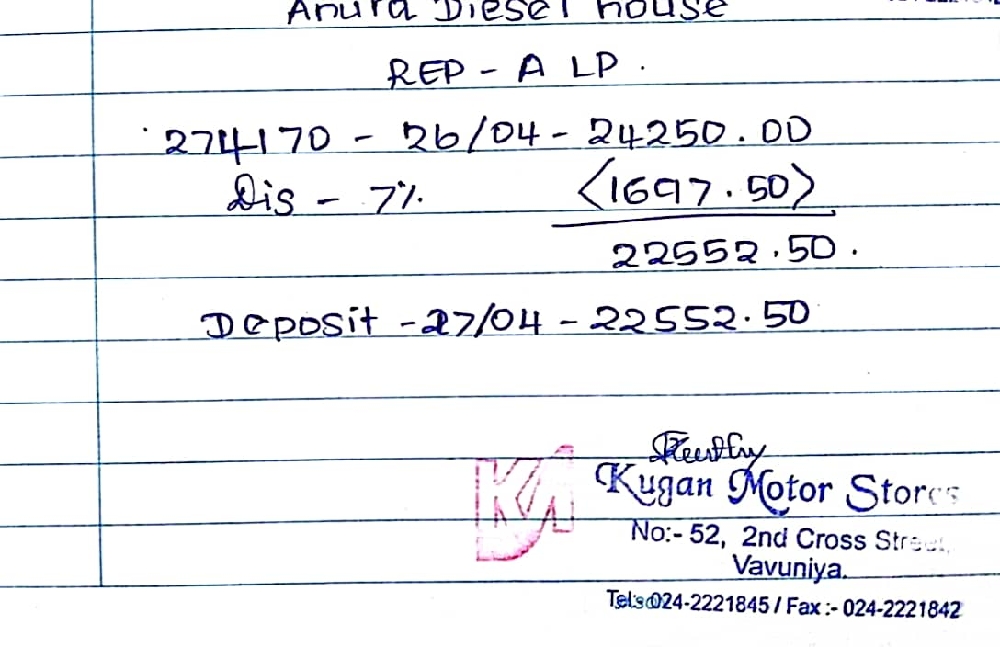 Anura Diesel House
REP - A LP.
274170 - 26/04 - 24250.00
Dis - 7% <1697.50>
22552.50.
Deposit - 27/04 - 22552.50
Kugan Motor Stores
No:- 52, 2nd Cross Street,
Vavuniya.
Tel:- 024-2221845 / Fax :- 024-2221842